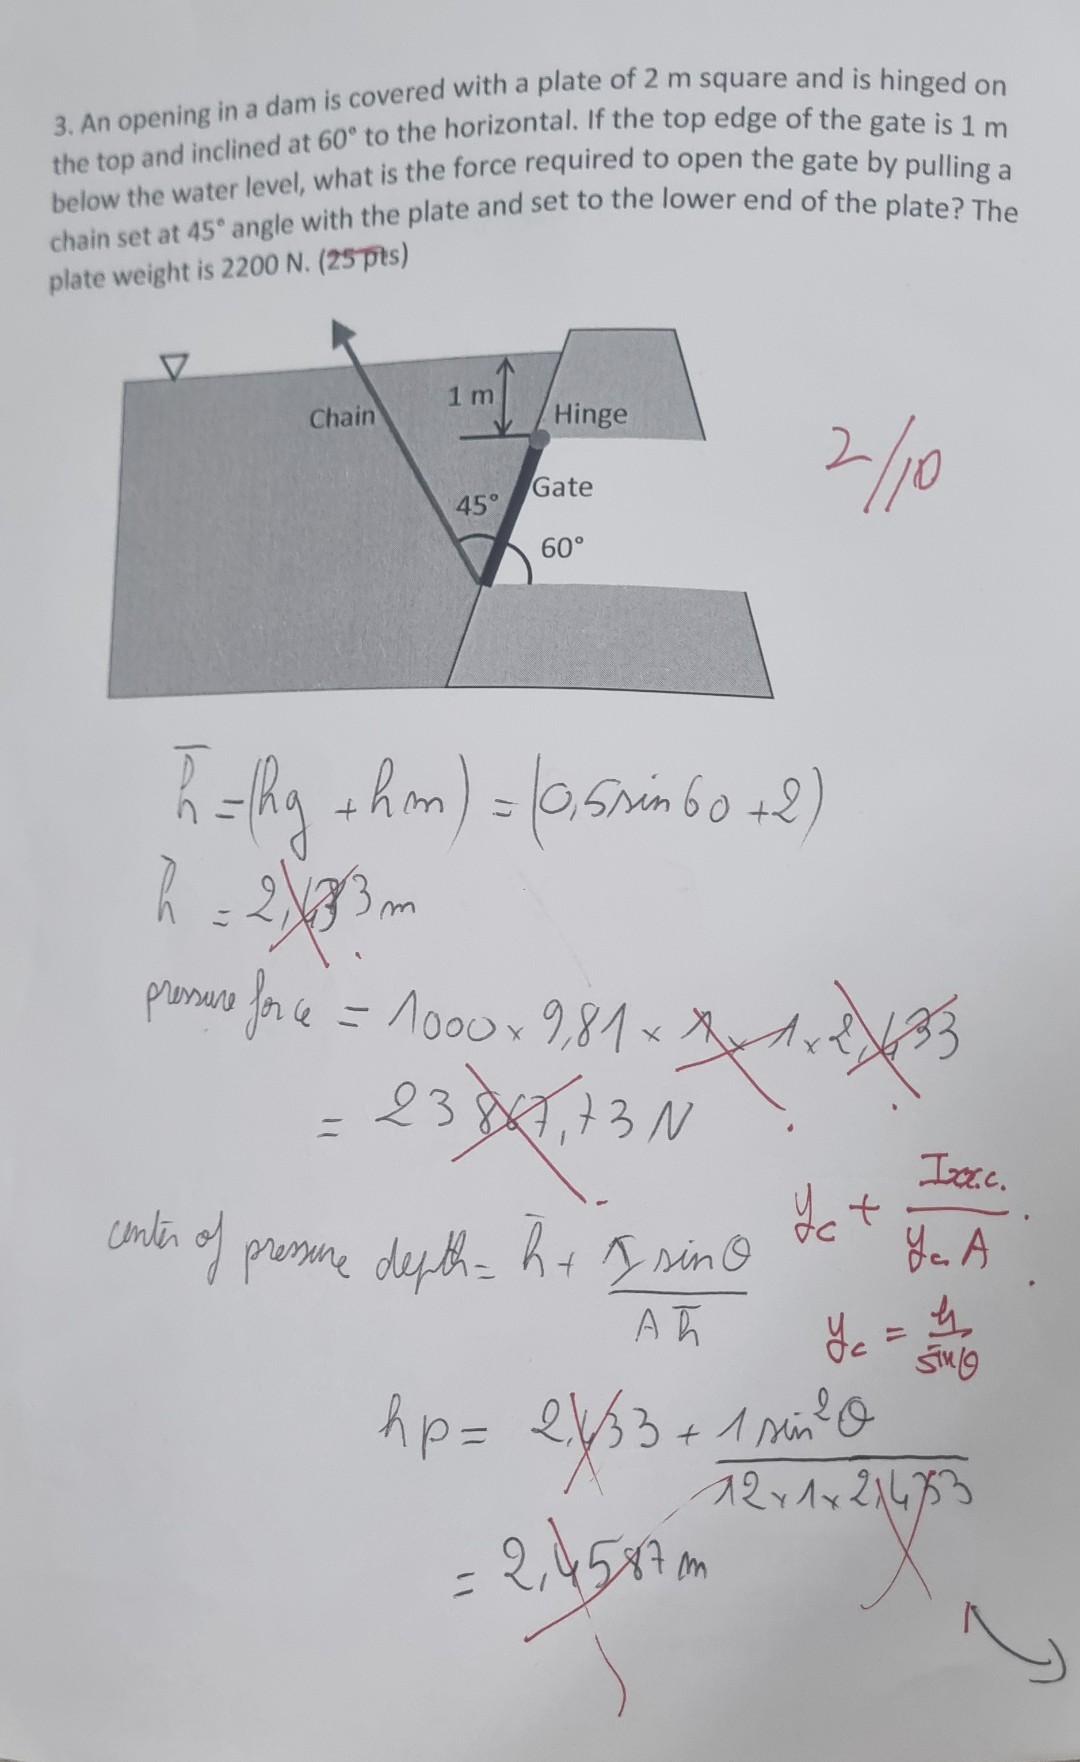 3. An opening in a dam is covered with a plate of 2 m square and is hinged on
the top and inclined at 60° to the horizontal. If the top edge of the gate is 1 m
below the water level, what is the force required to open the gate by pulling a
chain set at 45° angle with the plate and set to the lower end of the plate? The
plate weight is 2200 N. (25 pts)
1 m
Chain
Hinge
Gate
45°
60°
2/10
h̄ = (hg + hm) = (0,5 sin 60 + 2)
h̄ = 2,433 m
pressure force = 1000 × 9,81 × 1 × 1 × 2,433
= 23 867,73 N
center of pressure depth = h̄ + I sin θ / A h̄
yc + Ixx.c. / yc A
yc = h / sin θ
hp = 2,433 + 1 sin² θ / 12 × 1 × 2,433
= 2,4587 m